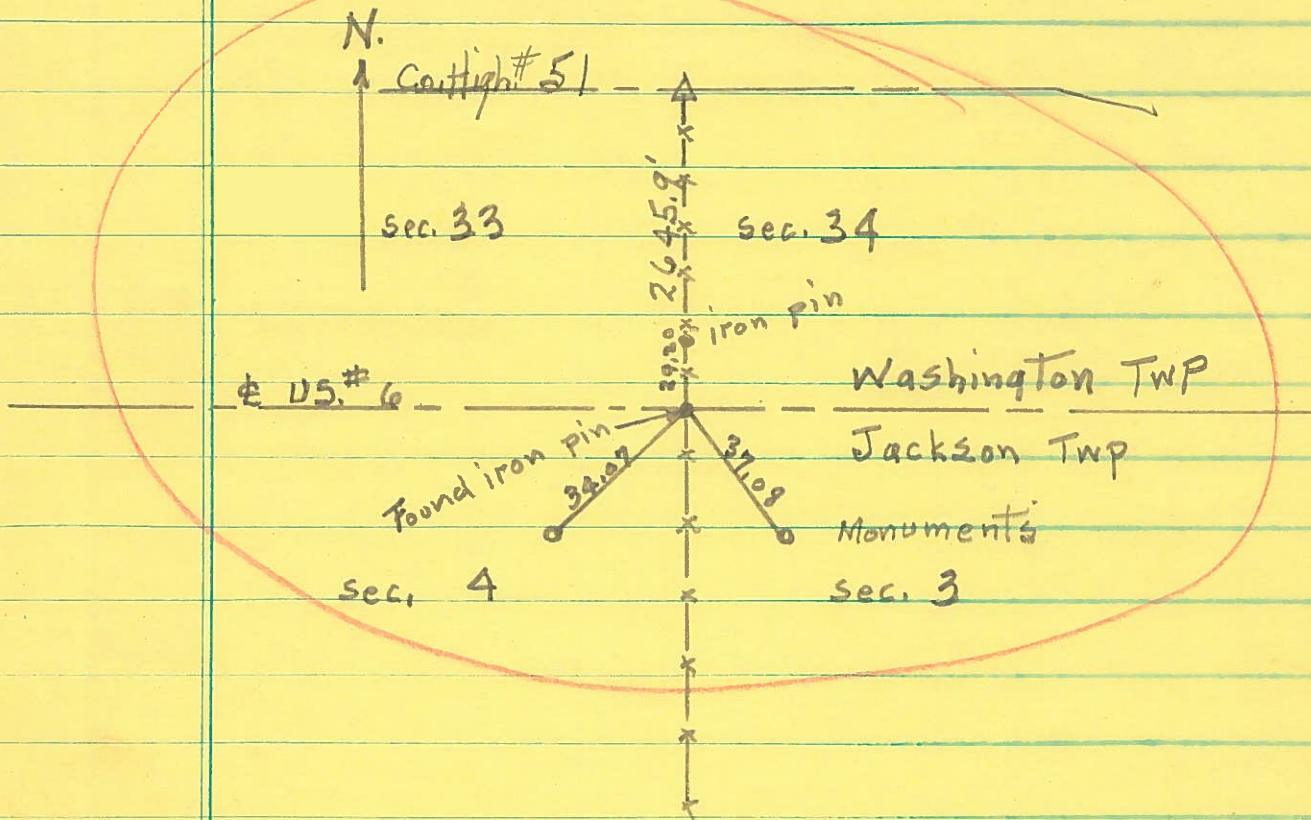 N.
Co. High. # 51
2645.9'
sec. 33
sec. 34
iron pin
39.20
Washington Twp
℄ U.S. # 6
Jackson Twp
Found iron pin
34.07
37.08
Monuments
sec. 4
sec. 3